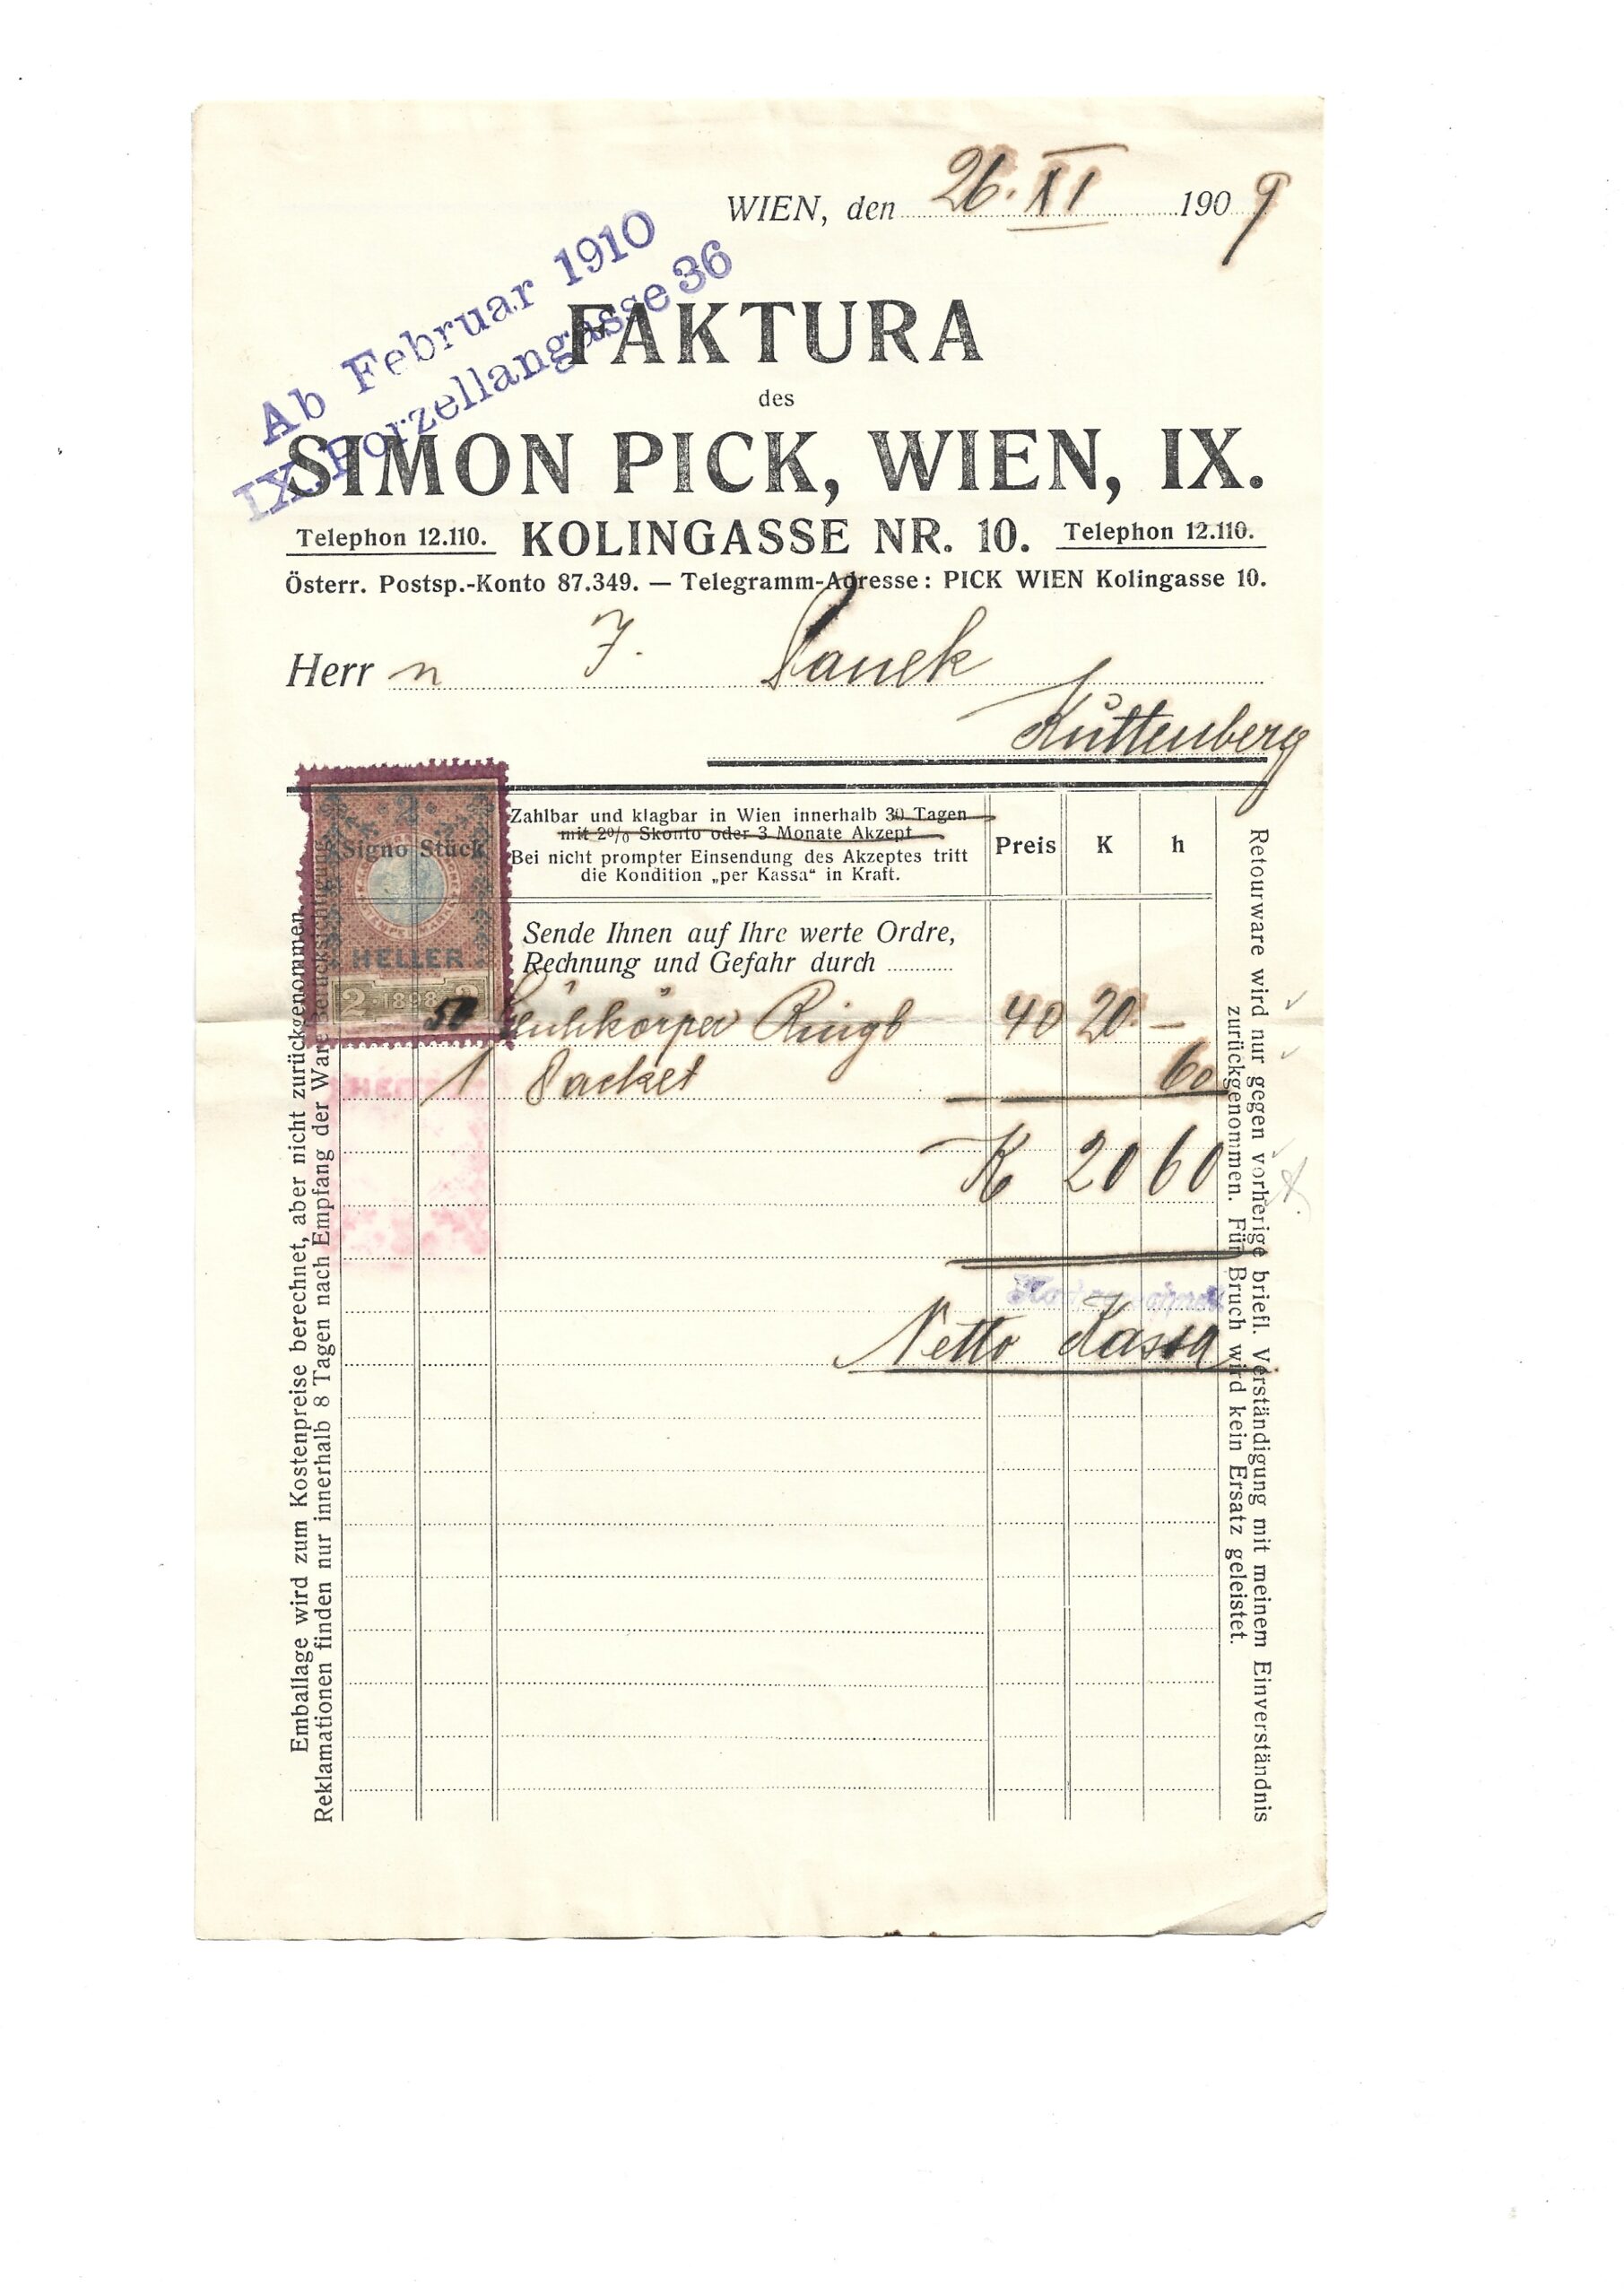 WIEN, den 26. XI 1909
Ab Februar 1910
IX. Porzellangasse 36
FAKTURA
des
SIMON PICK, WIEN, IX.
Telephon 12.110. KOLINGASSE NR. 10. Telephon 12.110.
Österr. Postsp.-Konto 87.349. — Telegramm-Adresse: PICK WIEN Kolingasse 10.
Herr n J. Panek
Kuttenberg
Zahlbar und klagbar in Wien innerhalb 30 Tagen
mit 2% Skonto oder 3 Monate Akzept
Bei nicht prompter Einsendung des Akzeptes tritt
die Kondition „per Kassa“ in Kraft.
Preis K h
2
Signo Stück
HELLER
2 1898 2
Sende Ihnen auf Ihre werte Ordre,
Rechnung und Gefahr durch
50 Glühkörper Ringb 40 20 —
1 Packet 60
K 20 60
Netto Kassa
Emballage wird zum Kostenpreise berechnet, aber nicht zurückgenommen.
Reklamationen finden nur innerhalb 8 Tagen nach Empfang der Ware Berücksichtigung.
Retourware wird nur gegen vorherige briefl. Verständigung mit meinem Einverständnis
zurückgenommen. Für Bruch wird kein Ersatz geleistet.